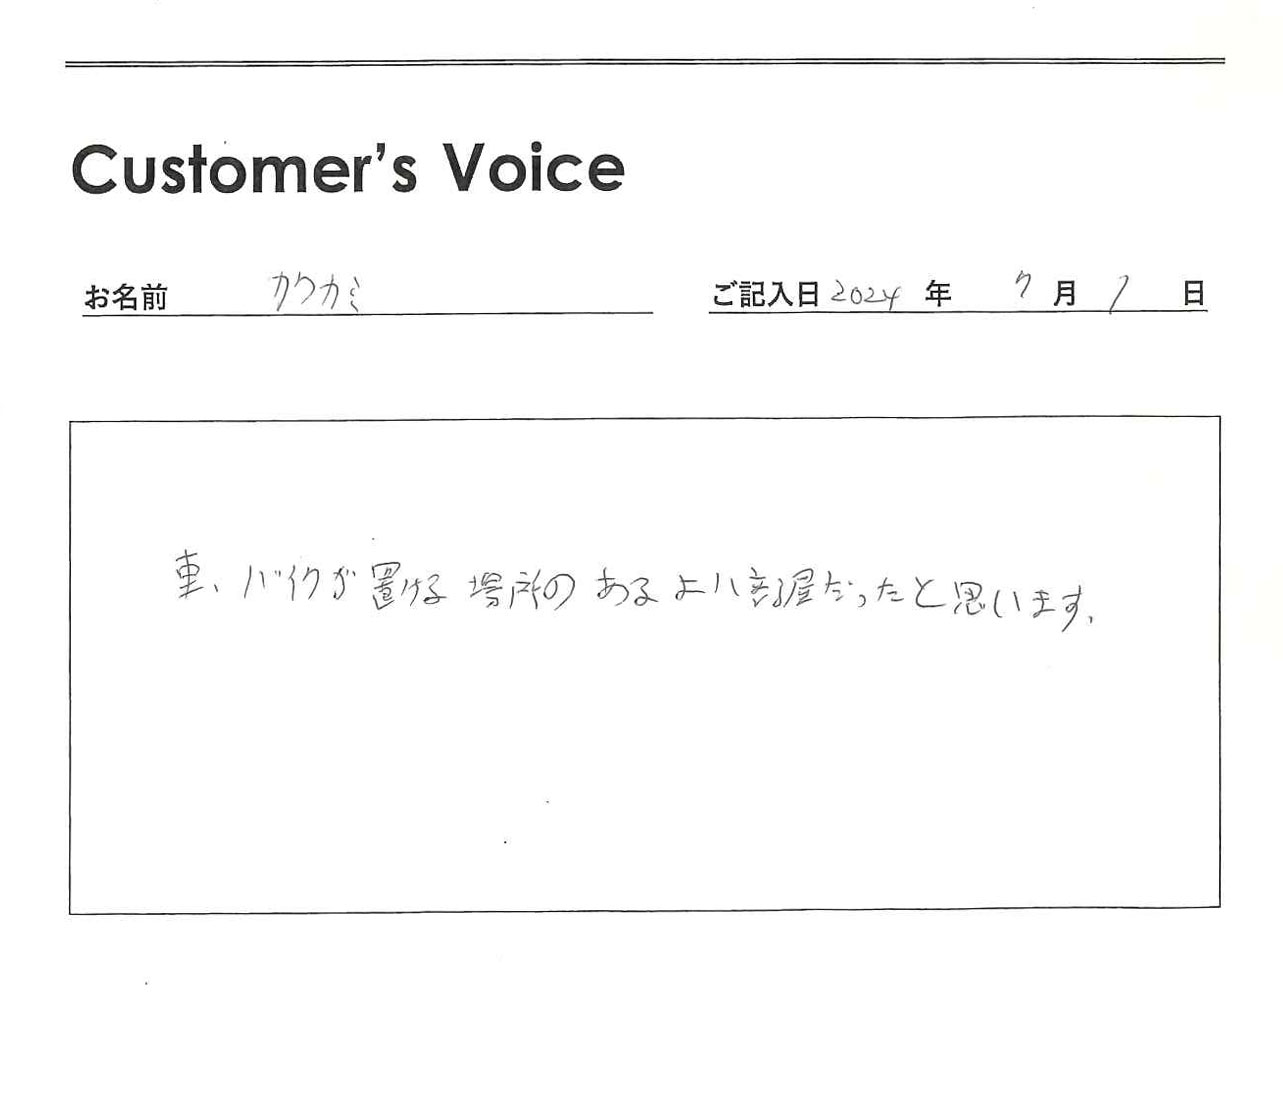 Customer's Voice
お名前 カワカミ ご記入日 2024 年 7 月 1 日
車、バイクが置ける場所のあるよい部屋だったと思います。